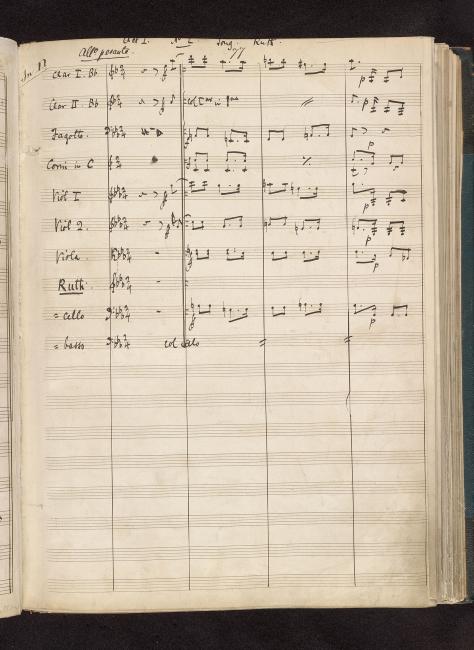 Act I. No 2. Song. Ruth.
Allo pesante.
Clar I. Bb
Clar II Bb
Fagotto.
Corni in C
Viol I
Viol 2.
Viola.
Ruth.
cello
basso
col cello
p
p
p
p
p
p
p